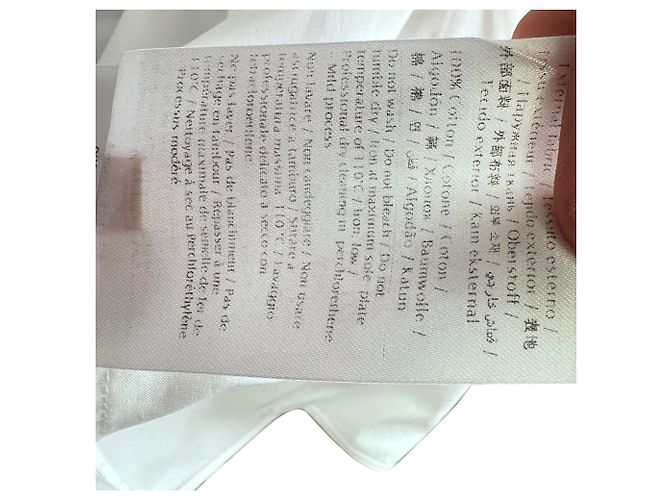 External fabric / Tessuto esterno /
Tissu extérieur / Tejido exterior / 表地
/ Наружная ткань / Oberstoff /
外部面料 / 外部布料 / 외부 소재 / قماش خارجي /
Tecido exterior / Kain eksternal
100% Cotton / Cotone / Coton /
Algodón / 綿 / Хлопок / Baumwolle /
棉 / 棉 / 면 / قطن / Algodão / Katun
Do not wash / Do not bleach / Do not
tumble dry / Iron at maximum sole plate
temperature of 110°C / Iron, low /
Professional dry cleaning in perchlorethene
- Mild process
Non lavare / Non candeggiare / Non usare
asciugatrice a tamburo / Stirare a
temperatura massima 110°C / Lavaggio
professionale delicato a secco con
tetracloroetilene
Ne pas laver / Pas de blanchiment / Pas de
séchage en tambour / Repasser à une
température maximale de semelle de fer de
110°C / Nettoyage à sec au perchloréthylène
Processus modéré